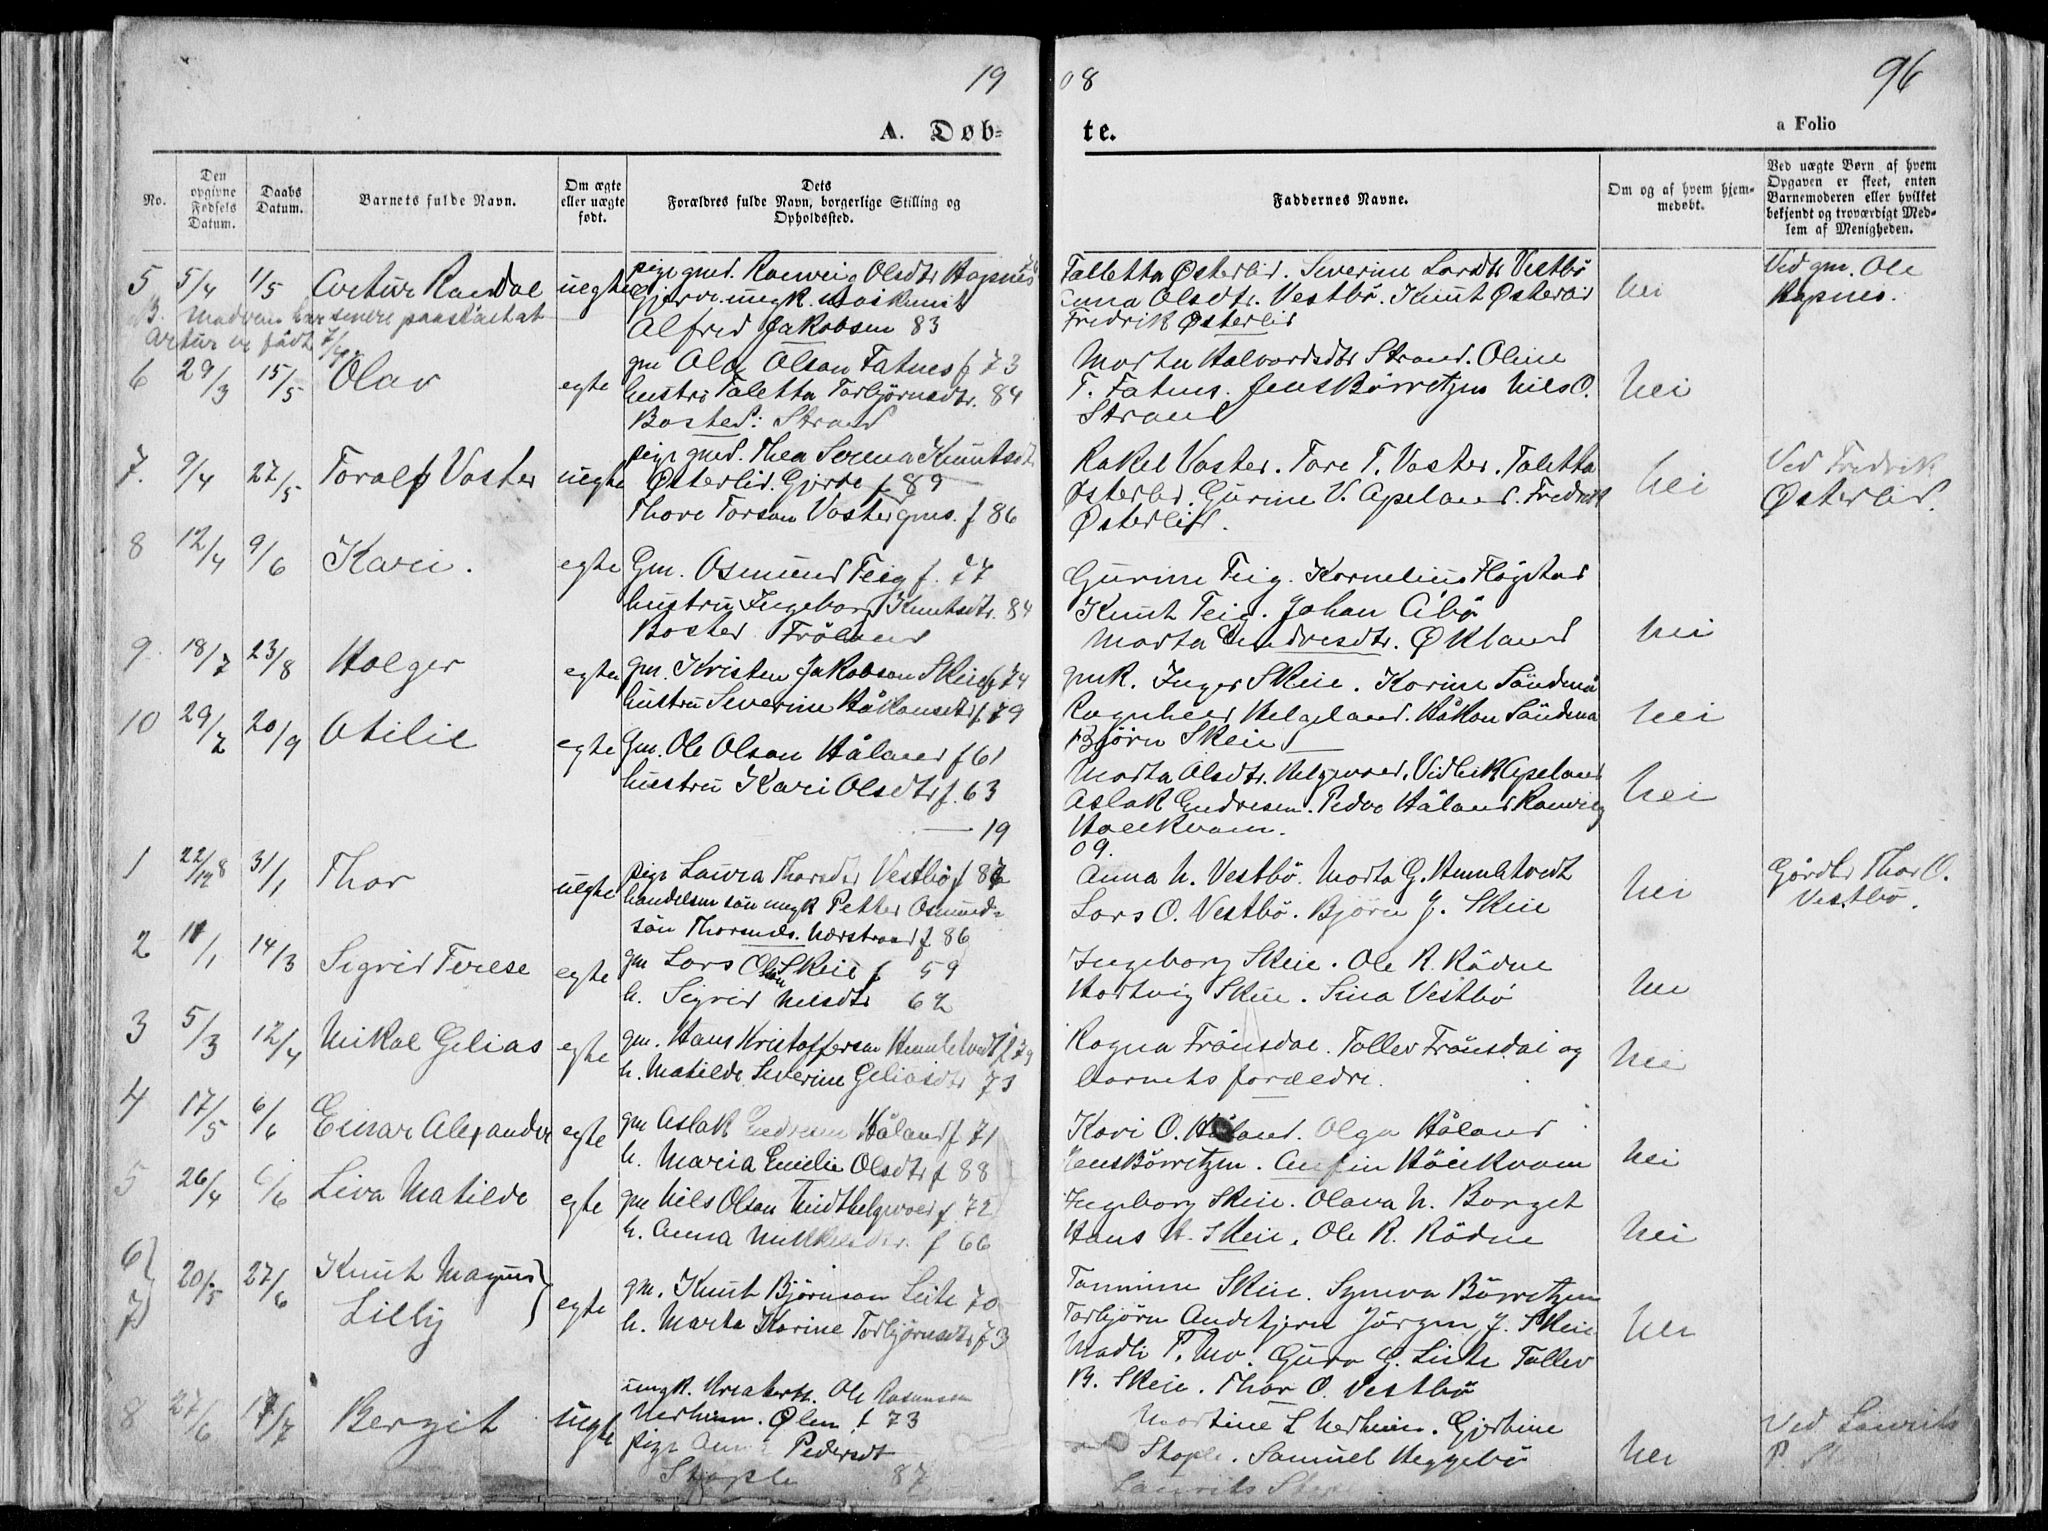 19
08
96
A. Døb-
te.
a Folio
No.
Den opgivne Fødsels Datum.
Daabs Datum.
Barnets fulde Navn.
Om ægte eller uægte født.
Dets Forældres fulde Navn, borgerlige Stilling og Opholdssted.
Faddernes Navne.
Om og af hvem hjemmedøbt.
Ved uægte Børn af hvem Opgaven er skeet, enten Barnemoderen eller hvilket bekjendt og troværdigt Medlem af Menigheden.
5 5/4 1/5 Artur Randal uegte
pige gmd. Ranveig Olsdtr Hapnes
Gjerde. ungk. maskinist
Alfred Jakobsen 83
Talletta Østerlid. Severine Larsdtr Vestbö
Anna Olsdtr. Vestbö. Knut Østerlid
Fredrik Østerlid
nei
Ved gm. Ole
Hapnes.
B. Modren har senere paastået at
Artur er født 7/4
6 29/3 15/5 Olav egte
gm Ola Olson Fatnes f 73
hustru Taletta Torbjörnsdtr. 84
Bosted: Strand
Marta Halvardsdtr Strand. Oline
T. Fatnes. Jens Börretzen Nils O.
Strand
nei
7. 9/4 27/5 Toralf Vaster uegte
pige gmd. Thea Serena Knutsdtr
Østerlid. Gjerde f 89
Thore Torson Vaster gms. f 86
Rakel Vaster. Tore T. Vaster. Taletta
Østerlid. Gurine V. Apeland. Fredrik
Østerlid.
nei
Ved Fredrik
Østerlid.
8 12/4 9/6 Kari. egte
Gm. Osmund Teig f. 77
hustru Ingeborg Knutsdtr. 84
Bosted Fröland
Gurine Teig. Kornelius Flögstad
Knut Teig. Johan Åbö
Marta Endresdtr. Økland
nei
9. 18/7 23/8 Holger egte
gm. Kristen Jakobson Skeie f 74
hustru Severine Håkonsdtr f. 79
gmk. Inger Skeie. Karine Söndenå
Ragnheid Helgeland. Håkon Söndenå
Björn Skeie
nei
10 29/7 20/9 Otilie egte
Gm. Ole Olson Håland f 61
hustru Kari Olsdtr f. 63
Marta Olsdtr. Helgevoed. Vidleik Apeland
Aslak Endresen. Peder Håland Ranveig
Haukvam.
nei
19
09.
1 22/12 8 31/1 Thor uegte
pige Laura Thorsdtr Vestbö f 87
handelsm sön ungk Petter Osmund-
sön Thorsnes. Nerstrand f 86
Anna N. Vestbö. Marta G. Humlekvedt
Lars O. Vestbö. Björn J. Skeie
nei
Gårdbr Thor O.
Vestbö.
2 11/1 14/3 Sigrid Terese egte
gm Lars Olsen Skeie f 59
h. Sigrid Nilsdtr 62
Ingeborg Skeie. Ole R. Rödne
Hartvig Skeie. Sina Vestbö
nei
3 5/3 12/4 Mikal Gelias egte
gm. Hans Kristofferson Humlekvedt f 79
h. Matilde Severine Geliasdtr 73
Ragna Frönsdal. Tollev Frönsdal og
barnets forældre.
nei
4 17/5 6/6 Einar Alexander egte
gm Aslak Endresen Håland f 71
h. Maria Emelie Olsdtr f 88
Kari O. Håland. Olga Håland
Jens Börretzen. Anfin Höiekvam
nei
5 26/4 6/6 Liva Matilde egte
gm Nils Olson Midthelgevoed f 72
h. Anna Mikkelsdtr. f 66
Ingeborg Skeie. Olava N. Borget
Hans H. Skeie. Ole R. Rödne
nei
6 7 20/5 27/6 Knut Magnus
Lilly egte
gm. Knut Björnson Leite 70
h. Marta Karine Torbjörnsdtr f 73
Tomine Skeie. Synva Börretzen
Torbjörn Austkjern Jörgen J. Skeie
Madli P. Mo. Guro G. Leite Tollev
B. Skeie. Thor O. Vestbö
nei
8 27/6 17/7 Bergit uegte
ungk. Ole Rasmusen
Nerheim. Ølen. f 73
pige Anna Pedersdt
Stople 87
Martine L Nerheim. Gjertine
Stople. Samuel Heggebö
Laurits Stople
nei
Ved Laurits
P. St